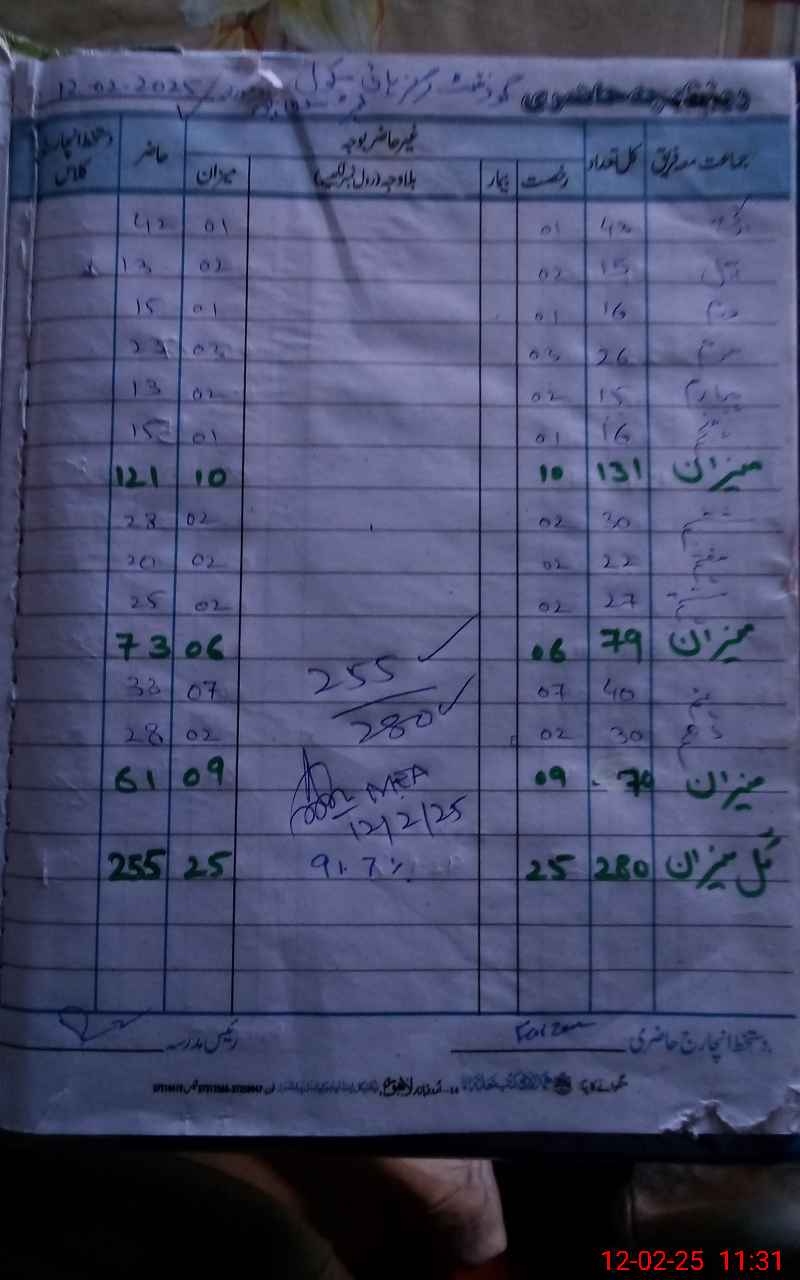 گورنمنٹ گرلز ہائی سکول 12-02-2025
جماعت معہ فریق کل تعداد غیر حاضر بوجہ حاضر دستخط انچارج کلاس
رخصت بیمار بلاوجہ (رول نمبر لکھیے) میزان
43 01 01 42
اول 15 02 02 13
دوم 16 01 01 15
سوم 26 03 03 23
چہارم 15 02 02 13
پنجم 16 01 01 15
میزان 131 10 10 121
ششم 30 02 02 28
ہفتم 22 02 02 20
ہشتم 27 02 02 25
میزان 79 06 06 73
نہم 40 07 07 33
255
280
دہم 30 02 02 28
میزان 70 09 09 61
MEA
12/2/25
کل میزان 280 25 91.7% 25 255
دستخط انچارج حاضری Faizan رئیس مدرسہ
12-02-25 11:31